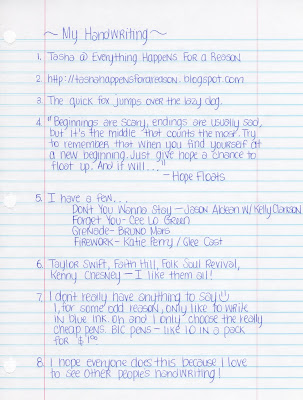 ~ My Handwriting ~
1. Tasha @ Everything Happens For a Reason
2. http://tashahappensforareason.blogspot.com
3. The quick fox jumps over the lazy dog.
4. "Beginnings are scary, endings are usually sad,
but it's the middle that counts the most. Try
to remember that when you find yourself at
a new beginning. Just give hope a chance to
float up. And it will..."
- Hope Floats
5. I have a few...
Don't You Wanna Stay - Jason Aldean w/ Kelly Clarkson
Forget You - Cee Lo Green
Grenade - Bruno Mars
Firework - Katie Perry / Glee Cast
6. Taylor Swift, Faith Hill, Folk Soul Revival,
Kenny Chesney - I like them all!
7. I dont really have anything to say
I, for some odd reason, only like to write
in Blue ink. oh and I only choose the really
cheap pens. BIC pens - like 10 in a pack
for $1.00
8. I hope everyone does this because I love
to see other people's handwriting!